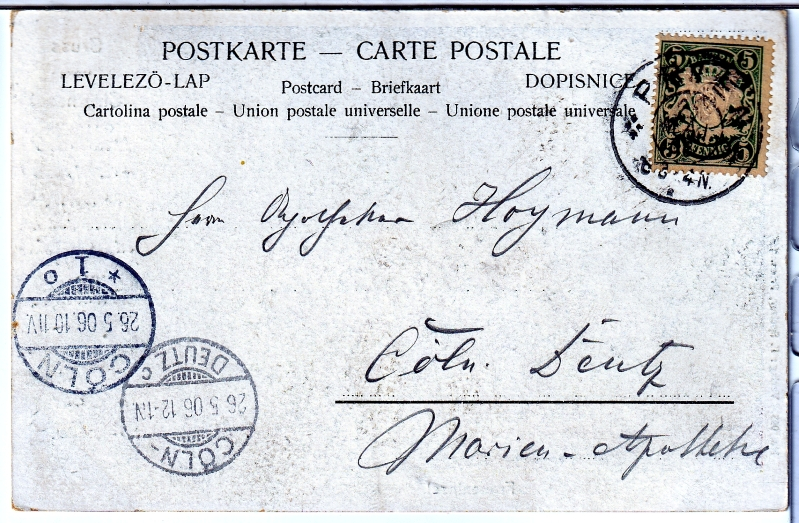 POSTKARTE — CARTE POSTALE
LEVELEZÖ-LAP Postcard – Briefkaart DOPISNICE
Cartolina postale – Union postale universelle – Unione postale universale
5 5
5 5
4N.
Herrn Apotheker Hoymann
Cöln. Deutz
Marien-Apotheke
* I o
26.5.06.10-11V.
CÖLN
DEUTZ c
26.5.06.12-1N
CÖLN-